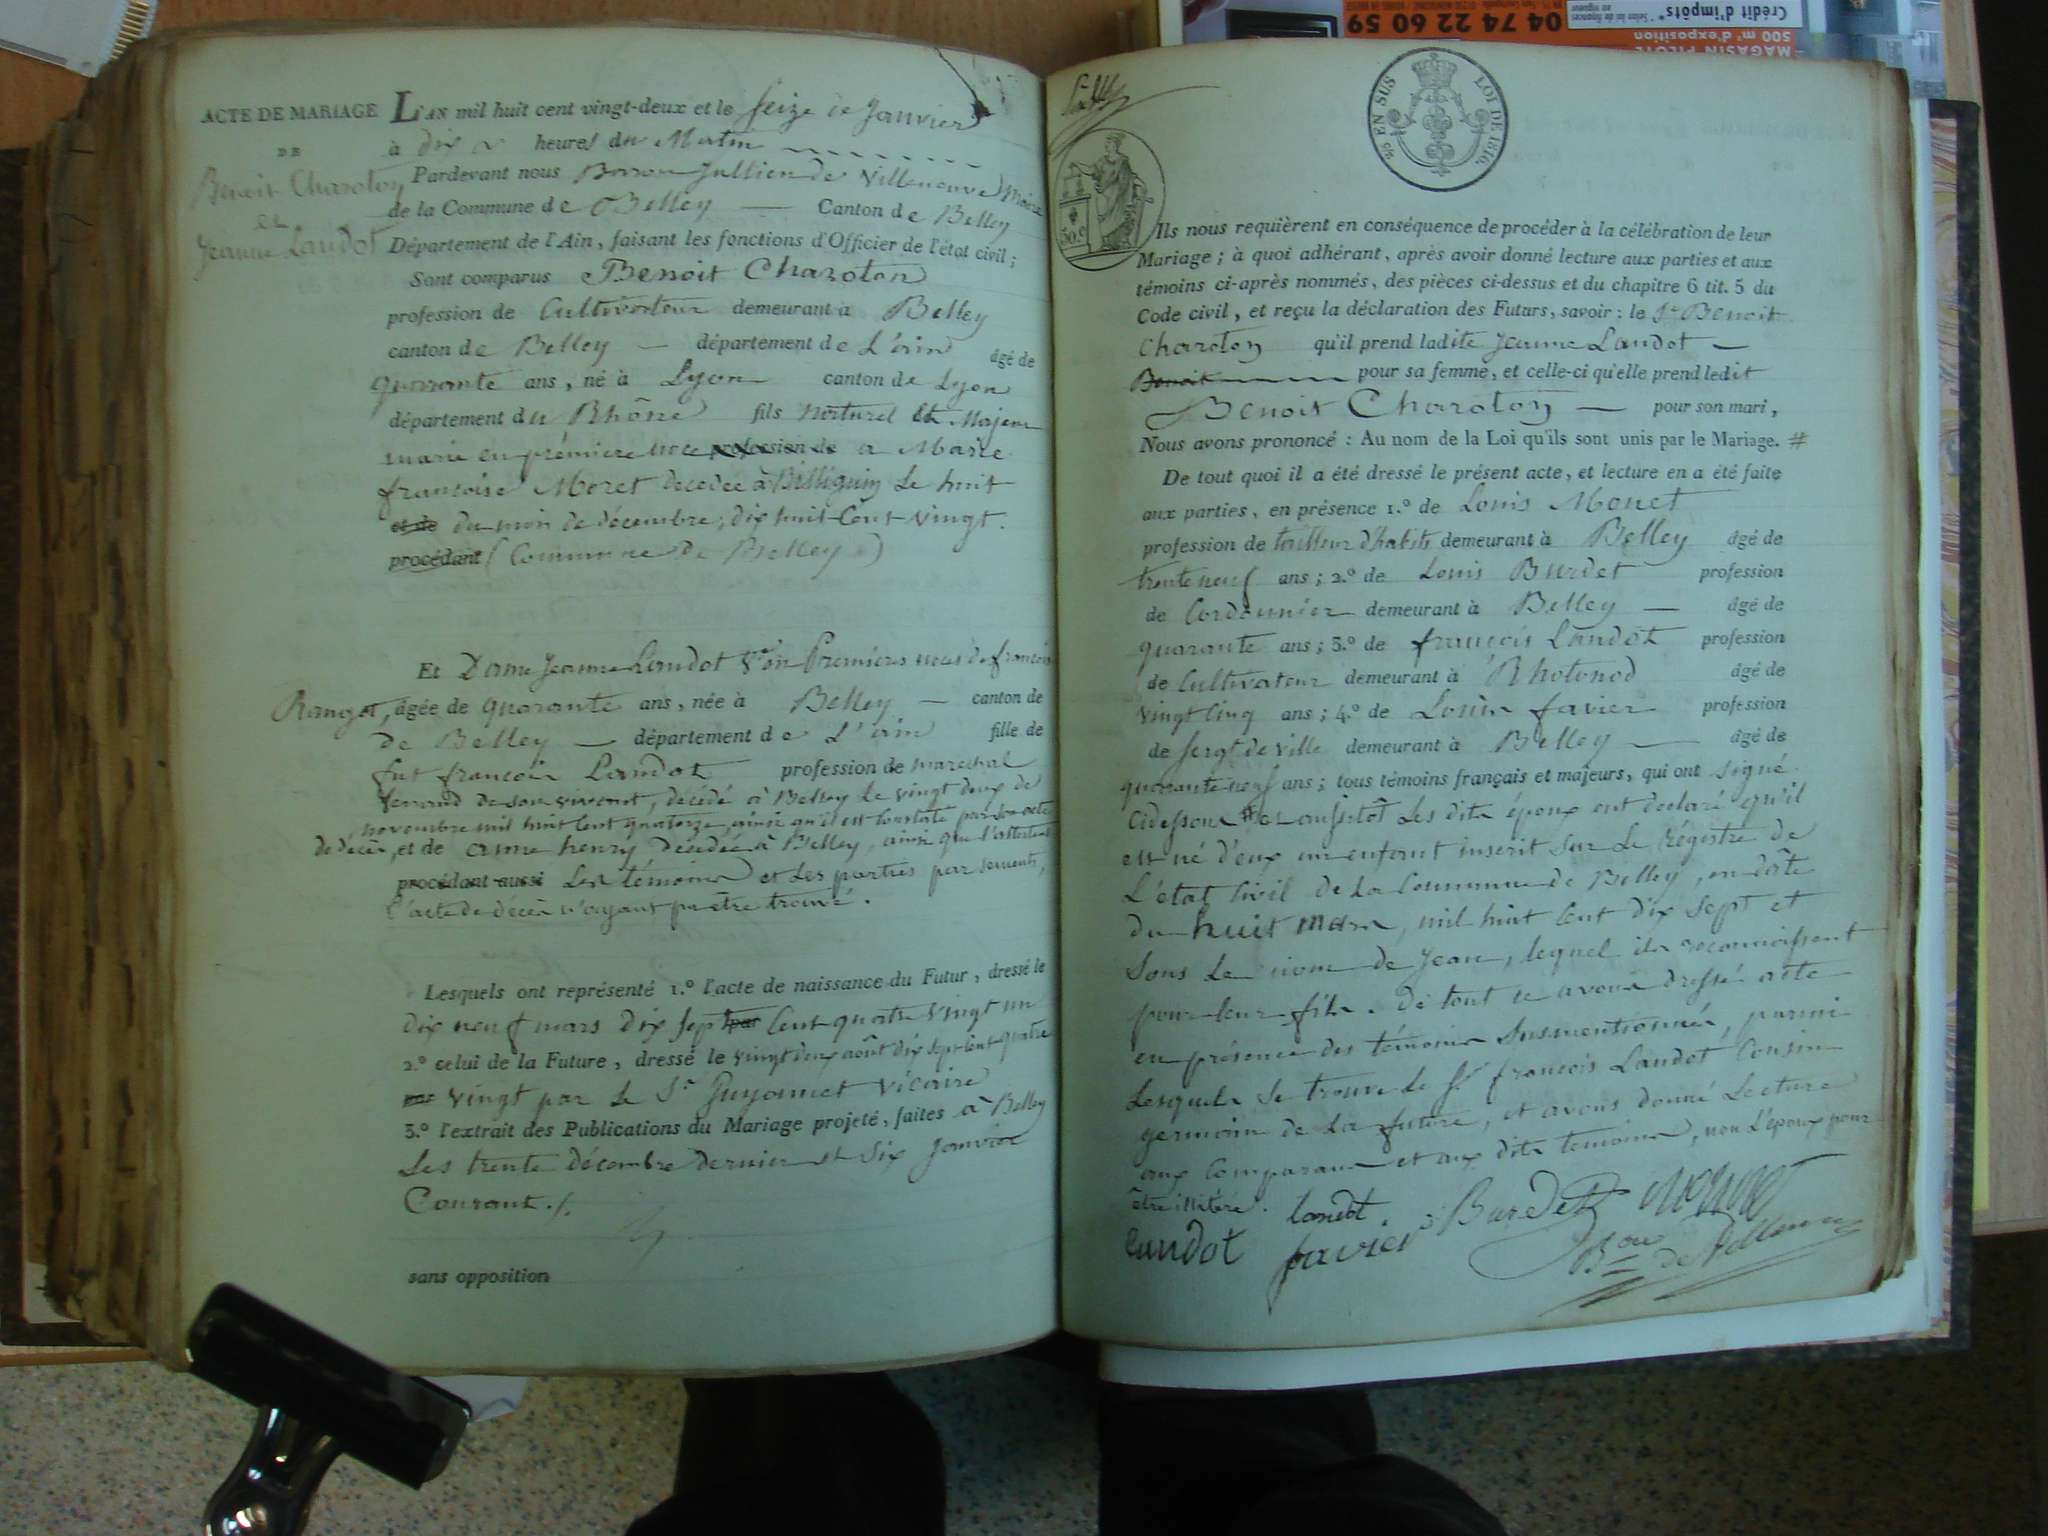 ACTE DE MARIAGE
DE
Benoit Charoton
et
Jeanne Landot
L'AN mil huit cent vingt-deux et le seize de Janvier
à dix heures du Matin
Pardevant nous Baron Jullien de Villeneuve Maire
de la Commune de Belley — Canton de Belley
Département de l'Ain, faisant les fonctions d'Officier de l'état civil ;
Sont comparus Benoit Charoton
profession de Cultivateur demeurant à Belley
canton de Belley — département de L'ain âgé de
quarante ans, né à Lyon canton de Lyon
département du Rhône fils naturel et Majeur
marié en prémière noce profession de a Marie
françoise Moret décédée à Billignin Le huit
et de du mois de décembre, dix huit Cent vingt.
procédant (Commune de Belley)
Et Dame Jeanne Landot Ve en Premières noces de françois
Rangot, âgée de quarante ans, née à Belley — canton de
de Belley — département de L'ain fille de
fut françois Landot profession de maréchal
ferrand de son vivant, décédé à Belley Le vingt deux de
novembre mil huit Cent quatorze, ainsi qu'il est Constaté par son acte
de décès, et de anne henry décédée à Belley, ainsi que l'attestent
procédant aussi Les témoins et Les parties par serment,
l'acte de décès n'ayant pu être trouvé.
Lesquels ont représenté 1.º l'acte de naissance du Futur, dressé le
dix neuf mars dix sept par Cent quatre vingt un
2.º celui de la Future, dressé le vingt deux août dix sept cent quatre
par vingt par Le Sr Guyonnet vicaire
3.º l'extrait des Publications du Mariage projeté, faites à Belley
Les trente décembre dernier et six Janvier
Courant ./.
sans opposition
25 EN SUS LOI DE 1816.
50.c
Ils nous requièrent en conséquence de procéder à la célébration de leur
Mariage ; à quoi adhérant, après avoir donné lecture aux parties et aux
témoins ci-après nommés, des pièces ci-dessus et du chapitre 6 tit. 5 du
Code civil, et reçu la déclaration des Futurs, savoir : le Sr Benoit
Charoton qu'il prend ladite Jeanne Landot —
Benoit pour sa femme, et celle-ci qu'elle prend ledit
Benoit Charoton — pour son mari,
Nous avons prononcé : Au nom de la Loi qu'ils sont unis par le Mariage. #
De tout quoi il a été dressé le présent acte, et lecture en a été faite
aux parties, en présence 1.º de Louis Monet
profession de tailleur d'habits demeurant à Belley âgé de
trente neuf ans ; 2.º de Louis Burdet profession
de Cordonnier demeurant à Belley — âgé de
quarante ans ; 3.º de françois Landot profession
de Cultivateur demeurant à Rhotonod âgé de
vingt Cinq ans ; 4.º de Louis favier profession
de Sergt de ville demeurant à Belley — âgé de
quarante neuf ans ; tous témoins français et majeurs, qui ont signé
Cidessous # et aussitôt Les dits époux ont déclaré qu'il
est né d'eux un enfant inscrit sur Le Régistre de
L'état Civil de La Commune de Belley, en date
du huit mars, mil huit Cent dix sept et
sous Le nom de Jean, lequel ils reconnoissent
pour leur fils. de tout ce avons dressé acte
en présence des témoins susmentionnés, parmi
Lesquels se trouve Le Sr françois Landot Cousin
germain de La future, et avons donné Lecture
aux Comparans et aux dits temoins, non L'époux pour
être illitéré. landot. Burdet Monet
Landot favier Bon de Villeneuve
Crédit d'impôts*
04 74 22 60 59
500 m² d'exposition
MAGASIN PILOTE